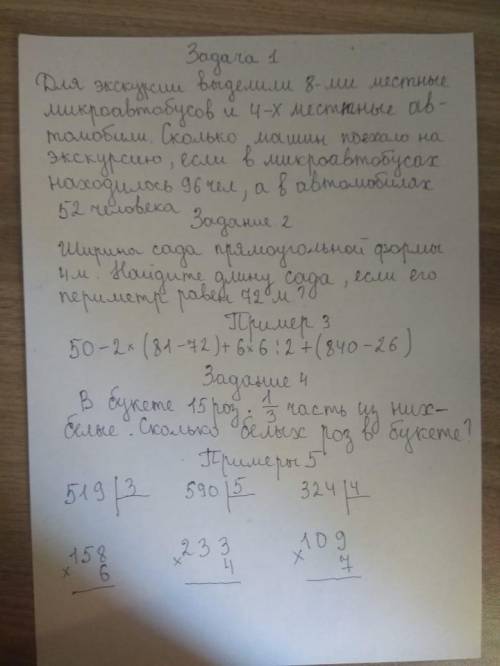 Задача 1
Для экскурсии выделили 8-ми местные
микроавтобусов и 4-х местные ав-
томобили. Сколько машин поехало на
экскурсию, если в микроавтобусах
находилось 96 чел, а в автомобилях
52 человека
Задание 2
Ширина сада прямоугольной формы
4 м. Найдите длину сада, если его
периметр равен 72 м?
Пример 3
50-2×(81-72)+6×6:2+(840-26)
Задание 4
В букете 15 роз. 1/3 часть из них-
белые. Сколько белых роз в букете?
Примеры 5
519 3 590 5 324 4
158 233 109
× 6 × 4 × 7